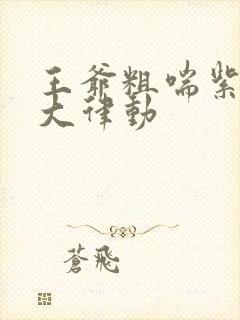 王爺粗喘紫
大律動
蒼飛